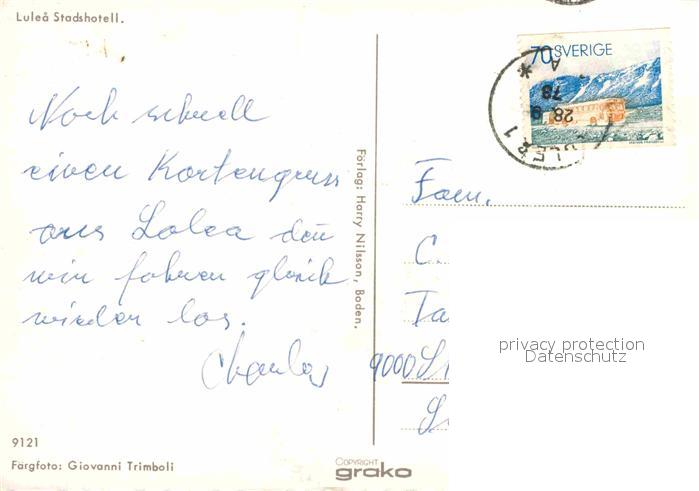 Luleå Stadshotell.
70 SVERIGE
LULEÅ 1
28 9
78
* A
Noch schnell
einen Kartengruss
aus Lulea den
wir fahren gleich
wieder los.
Charles
Förlag: Harry Nilsson, Boden.
Fam.
C.
Ta
9000 St
privacy protection
Datenschutz
9121
Färgfoto: Giovanni Trimboli
COPYRIGHT
grako